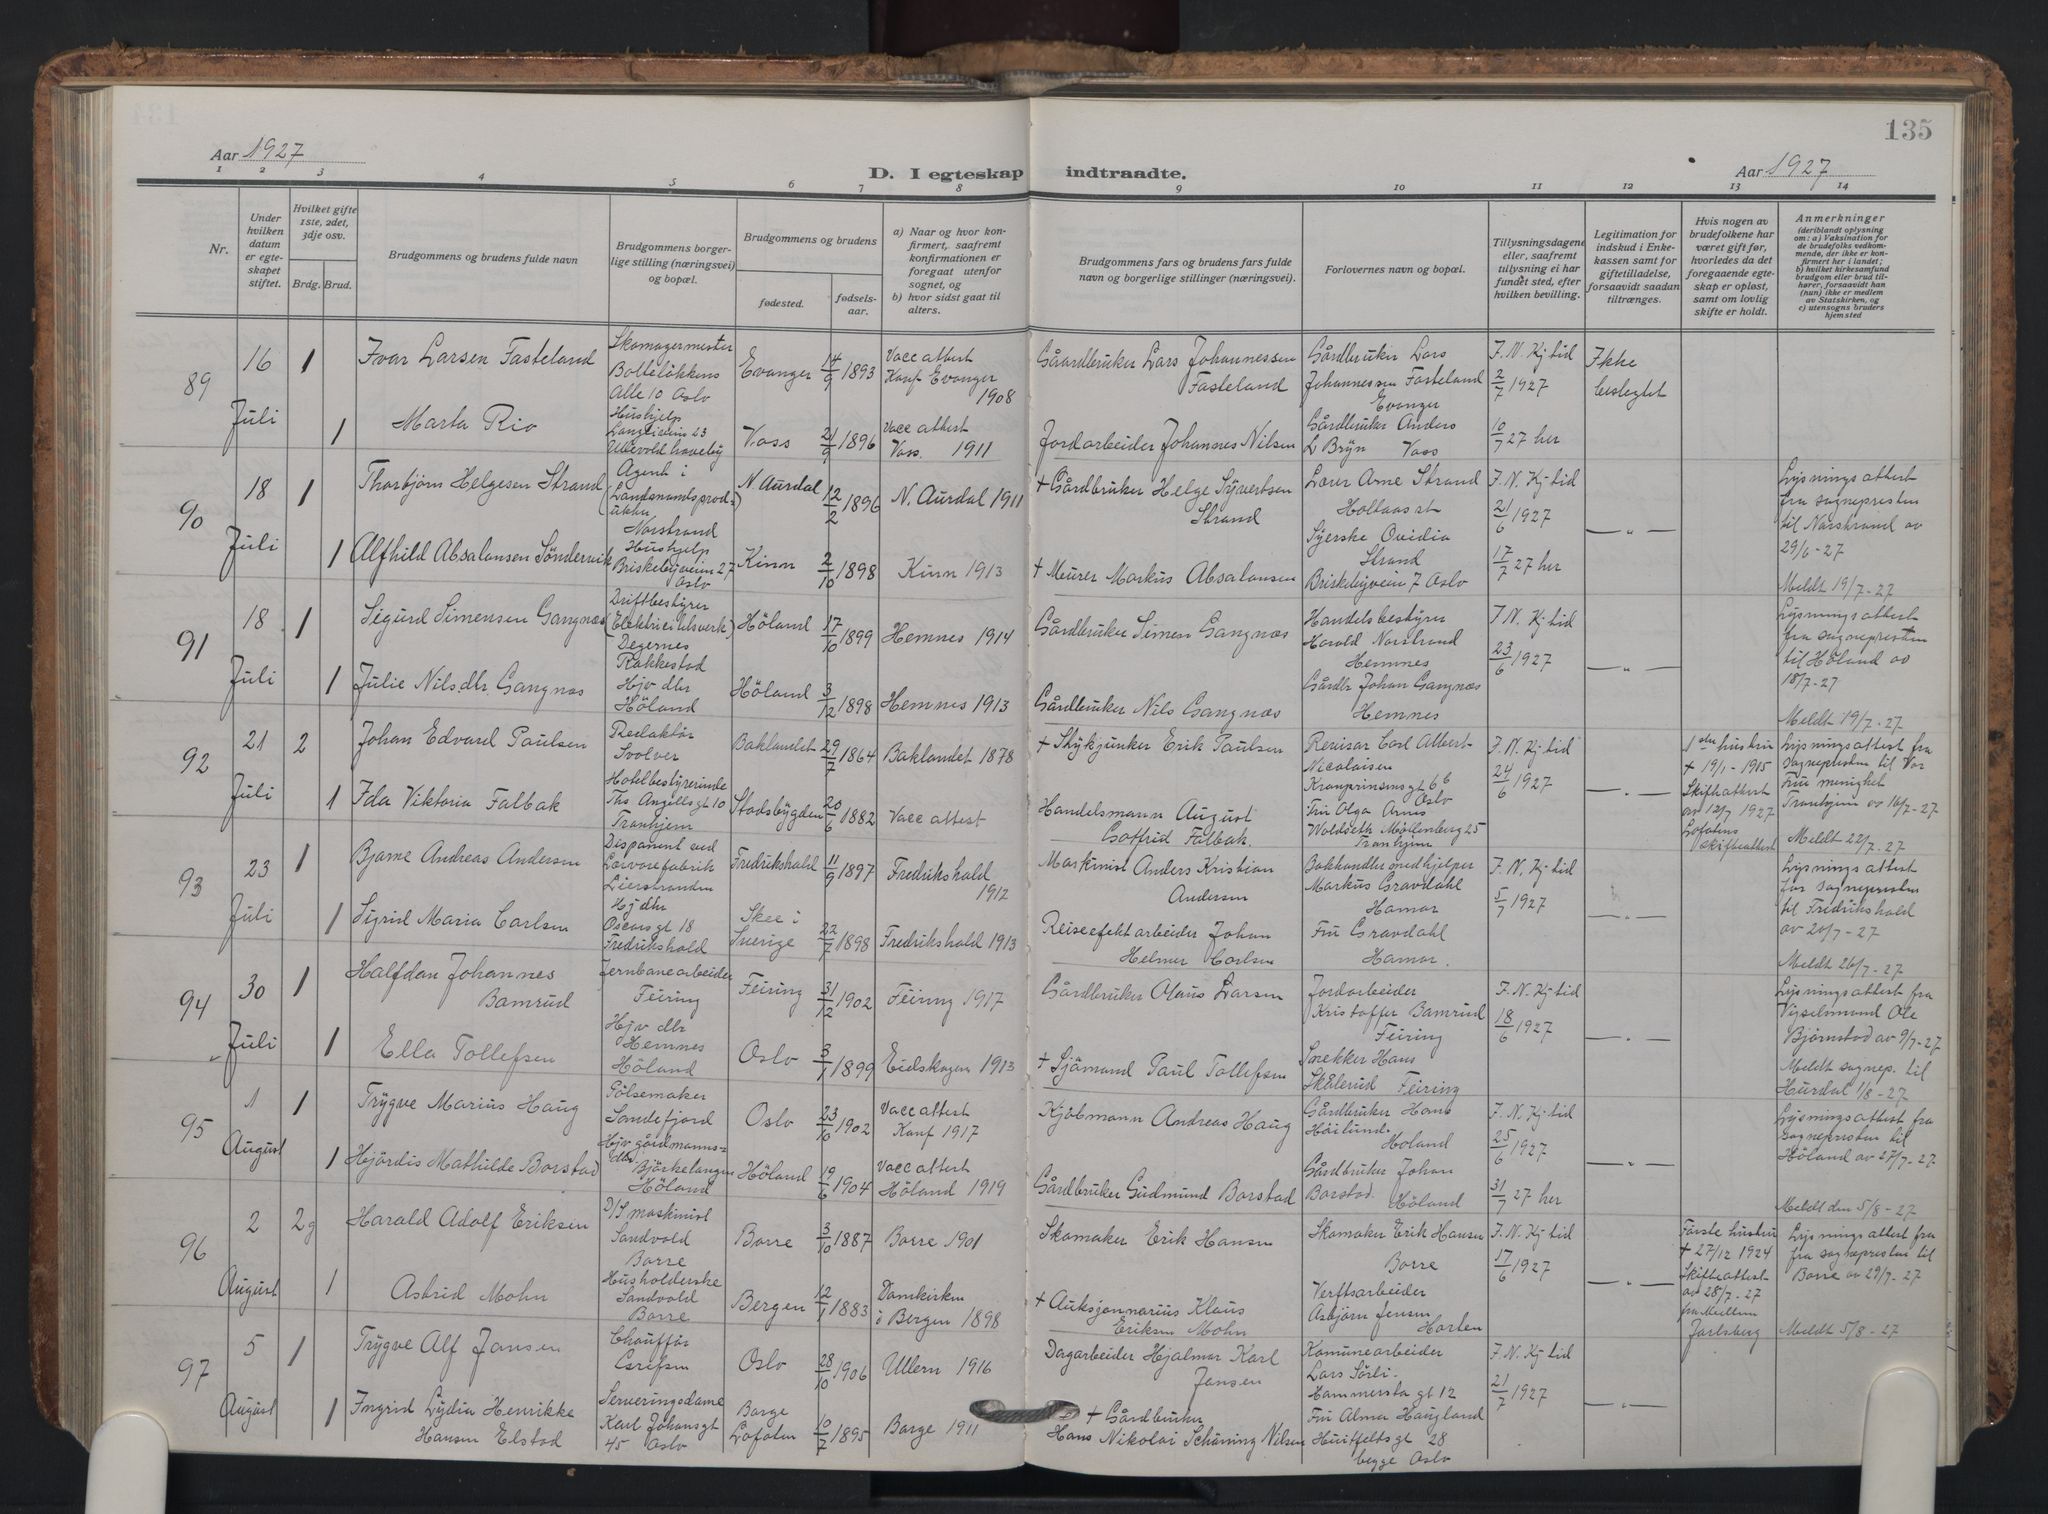 135
Aar 1927
D. I egteskap indtraadte.
Aar 1927
1 2 3 4 5 6 7 8 9 10 11 12 13 14
Nr.
Under hvilken datum er egteskapet stiftet.
Hvilket gifte 1ste, 2det, 3dje osv.
Brdg. Brud.
Brudgommens og brudens fulde navn
Brudgommens borgerlige stilling (næringsvei) og bopæl.
Brudgommens og brudens
fødested. fødselsaar.
a) Naar og hvor konfirmert, saafremt konfirmationen er foregaat utenfor sognet, og
b) hvor sidst gaat til alters.
Brudgommens fars og brudens fars fulde navn og borgerlige stillinger (næringsvei).
Forlovernes navn og bopæl.
Tillysningsdagene eller, saafremt tillysning ei har fundet sted, efter hvilken bevilling.
Legitimation for indskud i Enkekassen samt for giftetilladelse, forsaavidt saadan tiltrænges.
Hvis nogen av brudefolkene har været gift før, hvorledes da det foregaaende egteskap er opløst, samt om lovlig skifte er holdt.
Anmerkninger (deriblandt oplysning om: a) Vaksination for de brudefolks vedkommende, der ikke er konfirmert her i landet; b) hvilket kirkesamfund brudgom eller brud tilhører, forsaavidt han (hun) ikke er medlem av Statskirken, og c) utensogns bruders hjemsted
89 16 Juli 1 Ivar Larsen Fasteland Skomagermester Bolteløkkens Alle 10 Oslo Evanger 14/9 1893 Vacc attest Konf Evanger 1908 Gaardbruker Lars Johannessen Fasteland Gårdbruker Lars Johannessen Fasteland Evanger F. N. Kj tid 2/7 1927 Ikke beslegtet
1 Marta Rio Hushjelp Ullevold haveby Voss 1896 Vacc attest Voss. 1911 Jordarbeider Johannes Nilsen Gårdbruker Anders L Bryn Voss 10/7 27 her
90 18 Juli 1 Thorbjørn Helgesen Strand Agent i (Landsmandsprodukter) Norstrand N. Aurdal 12/2 1896 N. Aurdal 1911 + Gårdbruker Helge Syvertsen Strand Lærer Arne Strand F. N. Kj tid 21/6 1927 — „ — Lysningsattest fra sognepresten til Norstrand av 29/6 - 27
1 Alfhild Absalonsen Søndervik Hushjelp Briskebyveien 27 Oslo Kinn 2/10 1898 Kinn 1913 + Meurer Markus Absalonsen Syerske Ovidia Strand Briskebyveien 7 Oslo 17/7 27 her Meldt 19/7 - 27
91 18 Juli 1 Sigurd Simensen Gangnæs Driftbestyrer (Elektricitetsverk) Degernes Rakkestad Höland 17/10 1899 Hemnes 1914 Gårdbruker Simen Gangnæs Handelsbestyrer Harald Norstrand Hemnes F. N. Kj tid 23/6 1927 — „ — Lysningsattest fra sognepresten til Höland av 18/7-27
1 Julie Nilsdtr Gangnæs Hjv dtr Höland Höland 3/12 1898 Hemnes 1913 Gårdbruker Nils Gangnæs Gårdbr Johan Gangnæs Hemnes Meldt 19/7 - 27
92 21 Juli 2 Johan Edvard Paulsen Redaktør Svolvær Baklandet 29/7 1864 Baklandet 1878 + Stykjunker Erik Paulsen Revisor Carl Albert Nicolaisen Kronprinsensgt 6 Oslo F. N. Kj tid 24/6 1927 — „ — 1ste hustru + 19/1 - 1915 Skifteattest av 12/7 1927 Lofotens skifteattest Lysningsattest fra sognepresten til Vor Frue menighet Tronhjem av 16/7 - 27
1 Ida Viktoria Falbak Hotelbestyrerinde Ths Angellsgt 10 Tronhjem Stadsbygden 20/6 1882 Vacc attest Handelsmann August Gotfrid Falbak. Fru Olga Arnes Woldseth Møllenberg 25 Tronhjem Meldt 22/7 - 27
93 23 Juli 1 Bjarne Andreas Andersen Disponent ved Larvorefabrik Lierstranden Fredrikshald 11/9 1897 Fredrikshald 1912 Maskinist Anders Kristian Andersen Bokhandlermedhjelper Markus Gravdahl Hamar F. N. Kj tid 5/7 1927 — „ — Lysningsattest for sognepresten til Fredrikshald av 20/7 - 27
1 Sigrid Maria Carlsen Hj dtr Oscarsgt 18 Fredrikshald Skee i Sverige 22/7 1898 Fredrikshald 1913 Reiseefektarbeider Johan Helmer Carlsen Fru Gravdahl Hamar. Meldt 26/7 - 27
94 30 Juli 1 Halfdan Johannes Bamrud Jernbanearbeider Feiring Feiring 31/12 1902 Feiring 1917 Gårdbruker Olaus Larsen Jordarbeider Kristoffer Bamrud Feiring F. N. Kj tid 18/6 1927 — „ — Lysningsattest fra Vigselsmand Ole Bjørnstad av 9/7 - 27
1 Ella Tollefsen Hjv dtr Hemnes Höland Oslo 3/1 1899 Eidskogen 1913 + Sjömand Paul Tollefsen Snekker Hans Skålerud Feiring Meldt sognep. til Hurdal 1/8 - 27
95 1 August 1 Trygve Marius Haug Pølsemaker Sandefjord Oslo 23/10 1902 Vacc attest Konf 1917 Kjøbmann Andreas Haug Gårdbruker Hans Høilund Høland F. N. Kj tid 25/6 1927 — „ — Lysningsattest fra Sognepresten til Höland av 27/7 - 27
1 Hjördis Mathilde Borstad Hjv gårdmannsdtr Björkelangen Höland Höland 19/6 1904 Vacc attest Höland 1919 Gårdbruker Gudmund Borstad Gårdbruker Johan Borstad Höland 31/7 27 her Meldt den 5/8 - 27
96 2 August 2g Harald Adolf Eriksen D/S maskinist Sandvold Borre Borre 3/10 1887 Borre 1901 Skomaker Erik Hansen Skomaker Erik Hansen Borre F. N. Kj tid 17/6 1927 — „ — Første hustru + 27/12 1924 Skifteattest av 28/7 - 27 fra Mellem Jarlsberg Lysningsattest fra fra sognepresten til Borre av 29/7 - 27
1 Astrid Mohn Husholderske Sandvold Borre Bergen 12/1 1883 Domkirken i Bergen 1898 + Auksjonnarius Klaus Eriksen Mohn Verftsarbeider Asbjørn Jensen Horten Meldt 5/8 - 27
97 5 August 1 Trygve Alf Jansen Chauffør Oslo 28/10 1906 Ullern 1916 Dagarbeider Hjalmar Karl Jansen Komunearbeider Lars Sörli Hammerstagt 12 F. N. Kj tid 21/7 1927 — „ —
1 Ingrid Lydia Henrikke Hansen Elstad Serveringsdame Karl Johansgt 45 Oslo Borge Lofoten 10/7 1895 Borge 1911 + Gårdbruker Hans Nikolai Schöning Nilsen Fru Alma Haugland Huitfeldtsgt 28 begge Oslo